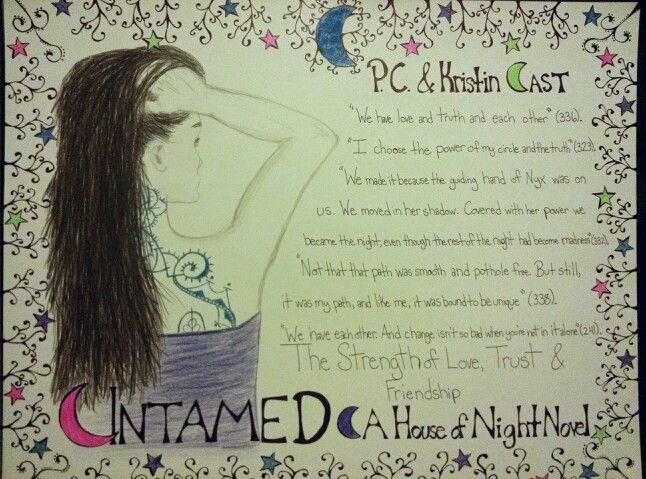 P.C. & Kristin CAST
"We have love and truth and each other" (336).
"I choose the power of my circle and the truth" (323).
"We made it because the guiding hand of Nyx was on
us. We moved in her shadow. Covered with her power we
became the night, even though the rest of the night had become madness" (332).
"Not that that path was smooth and pothole free. But still,
it was my path, and like me, it was bound to be unique" (338).
"We have each other. And change isn't so bad when you're not in it alone" (241).
The Strength of Love, Trust &
Friendship
UNTAMED A House of Night Novel